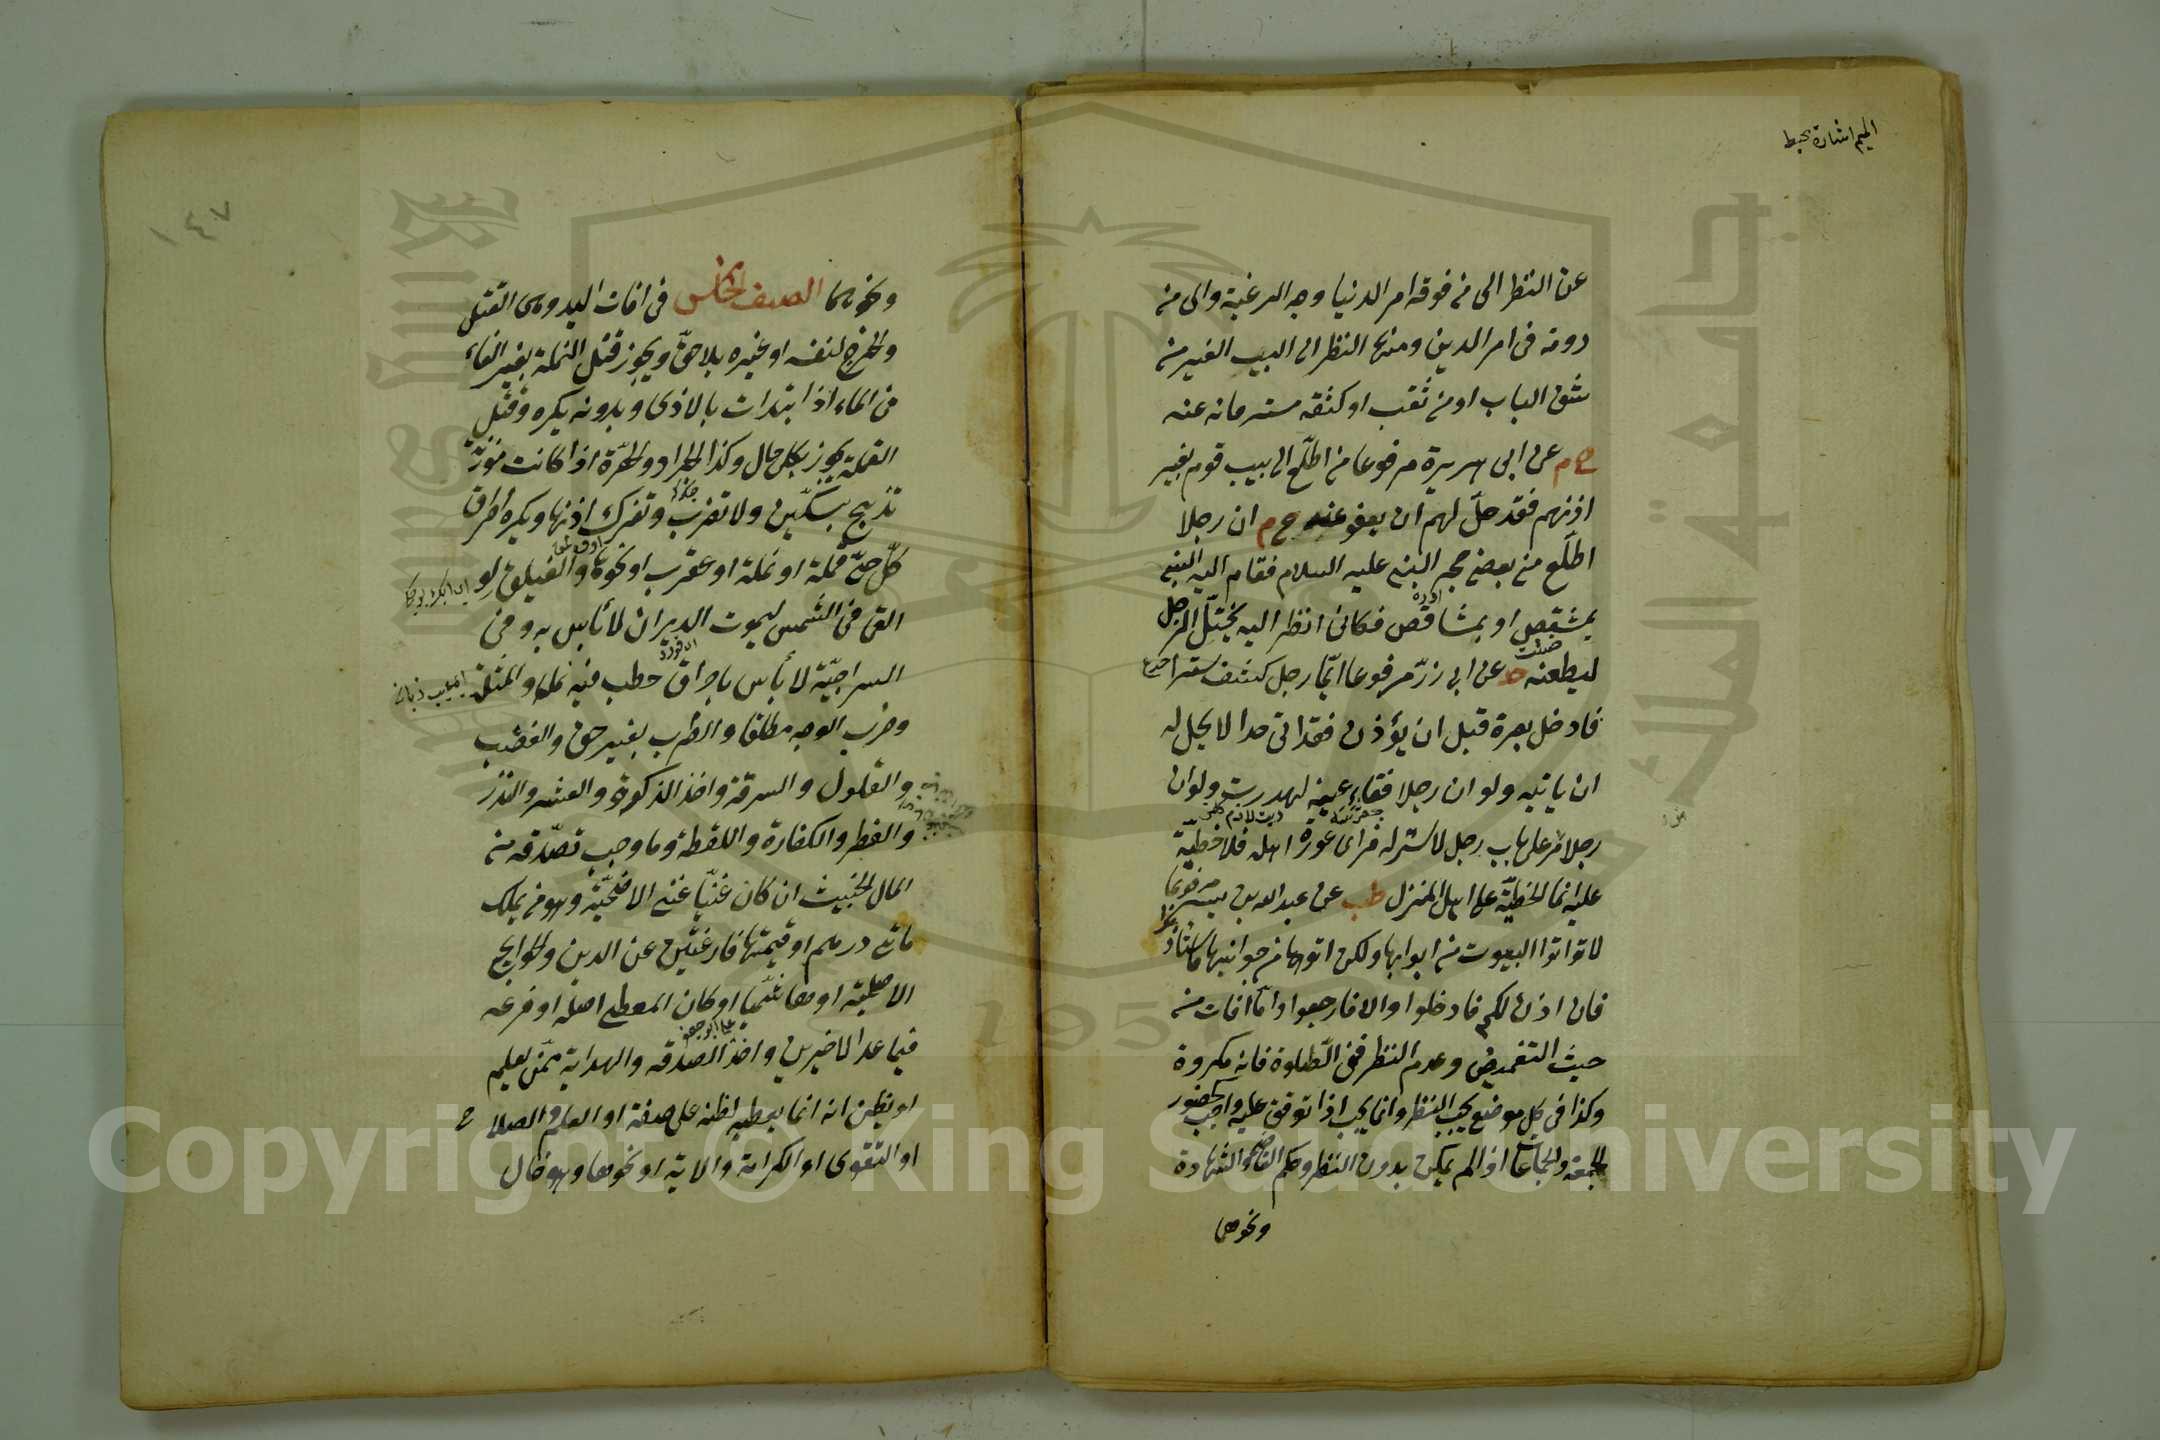 الميم اشارة يحبط
عن النظر الى من فوقه امر الدنيا وجه الرغبة والى من
دونه فى امر الدين ومنها النظر الى البيت الغير من
شق الباب او من ثقب او كشفه ستر مانه عنه
خ م عن ابى هريرة مرفوعا من اطلع الى بيت قوم بغير
اذنهم فقد حل لهم ان يفقؤ عينه خ م ان رجلا
اطلع من بعض حجر النبى عليه السلام فقام اليه النبى
بمشقص او بمشاقص فكانى انظر اليه يختل الرجل
ليطعنه حد عن ابى زر مرفوعا ايما رجل كشف سترا
فادخل بصرة قبل ان يؤذن فقد اتى حدا لا يحل له
ان ياتيه ولو ان رجلا فقاء عينه لهدرت ولو ان
رجلا مر على باب رجل لا ستر له فراى عورة اهله فلا خطيئة
عليه انما الخطيئة على اهل المنزل طب عن عبد الله بن بسر مرفوعا
لا تواتوا البيوت من ابوابها ولكن اتوها من جوانبها فاستأذنوا
فان اذن لكم فادخلوا والا فارجعوا واما افات من
حيث التغميض وعدم النظر ففى الصلوة فانه مكروه
وكذا فى كل موضع يجب النظر وانما يجب اذا توقف عليه واجب كحضور
الجمعة والجماعات اذا لم يمكن بدون النظر وحكم القاضى والشهادة
ونحوها
١٤٧
ونحوهما الصنف الخامس فى افات اليد وهى القتل
والجرح لنفسه او غيره بلا حق ويجوز قتل النملة بغير القاء
فى الماء اذا ابتدات بالاذى وبدونه يكره وقتل
القملة يجوز بكل حال وكذا الجراد والهرة اذا كانت موذية
تذبح بسكين ولا تضرب وتفرك اذنها ويكره احراق
كل حى قملة او نملة او عقرب او نحوها والفيلق لو
القى فى الشمس ليموت الديدان لا باس به وفى
السراجية لا بأس باحراق حطب فيه نمل والمثلة
وضرب الوجه مطلقا والضرب بغير حق والغضب
والغلول والسرقة واخذ الزكوة والعشر والنذر
والفطر والكفارة واللقطة وما وجب تصدقه من
المال الخبيث ان كان غنيا غنى الاضحية وهو من يملك
مائتى درهم او قيمتها فارغتين عن الدين والحوايج
الاصلية او هاشميا او كان المعطى اصله او فرعه
فيما عدا الاخيرين واخذ الصدقه والهداية ممن يعلم
او يظن انه انما يعطيه لظنه على صفة او العلم او الصلاح
او التقوى او الكرامة والاية او نحوها وهو خال